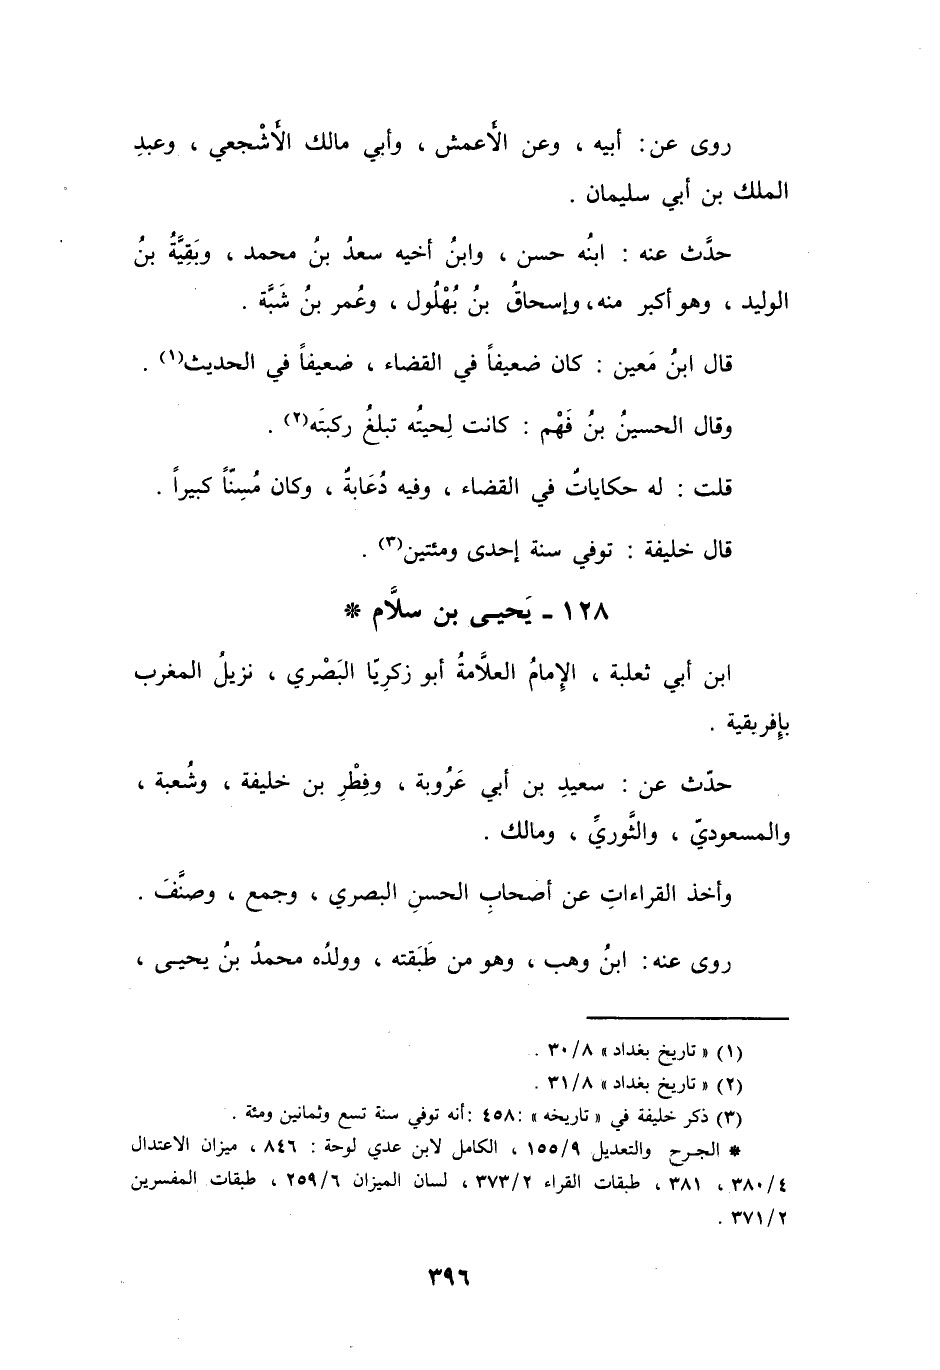 روى عن: أبيه ، وعن الأعمش ، وأبي مالك الأَشْجعي ، وعبدِ
الملك بن أبي سليمان .
حدَّث عنه : ابنُه حسن ، وابنُ أخيه سعدُ بنُ محمد ، وبَقِيَّةُ بنُ
الوليد ، وهو أكبر منه، وإسحاقُ بنُ بُهْلُول ، وعُمر بنُ شَبَّة .
قال ابنُ مَعين : كان ضعيفاً في القضاء ، ضعيفاً في الحديث(١) .
وقال الحسينُ بنُ فَهْم : كانت لِحيتُه تبلغُ ركبتَه(٢) .
قلت : له حكاياتٌ في القضاء ، وفيه دُعَابةٌ ، وكان مُسِنّاً كبيراً .
قال خليفة : توفي سنة إحدى ومئتين(٣) .
١٢٨ ـ يَحيـى بن سلاَّم *
ابن أبي ثعلبة ، الإِمامُ العلاَّمةُ أبو زكرِيّا البَصْري ، نزيلُ المغرب
بإِفريقية .
حدّث عن : سعيدِ بن أبي عَرُوبة ، وفِطْرِ بن خليفة ، وشُعبة ،
والمسعوديّ ، والثَّوريِّ ، ومالك .
وأخذ القراءاتِ عن أصحابِ الحسنِ البصري ، وجمع ، وصنَّفَ .
روى عنه: ابنُ وهب ، وهو من طَبَقته ، وولدُه محمدُ بنُ يحيـى ،
(١) « تاريخ بغداد » ٣٠/٨ .
(٢) « تاريخ بغداد » ٣١/٨ .
(٣) ذكر خليفة في « تاريخه » :٤٥٨ :أنه توفي سنة تسع وثمانين ومئة .
* الجرح والتعديل ١٥٥/٩ ، الكامل لابن عدي لوحة : ٨٤٦ ، ميزان الاعتدال
٣٨٠/٤ ، ٣٨١ ، طبقات القراء ٣٧٣/٢ ، لسان الميزان ٢٥٩/٦ ، طبقات المفسرين
٣٧١/٢ .
٣٩٦